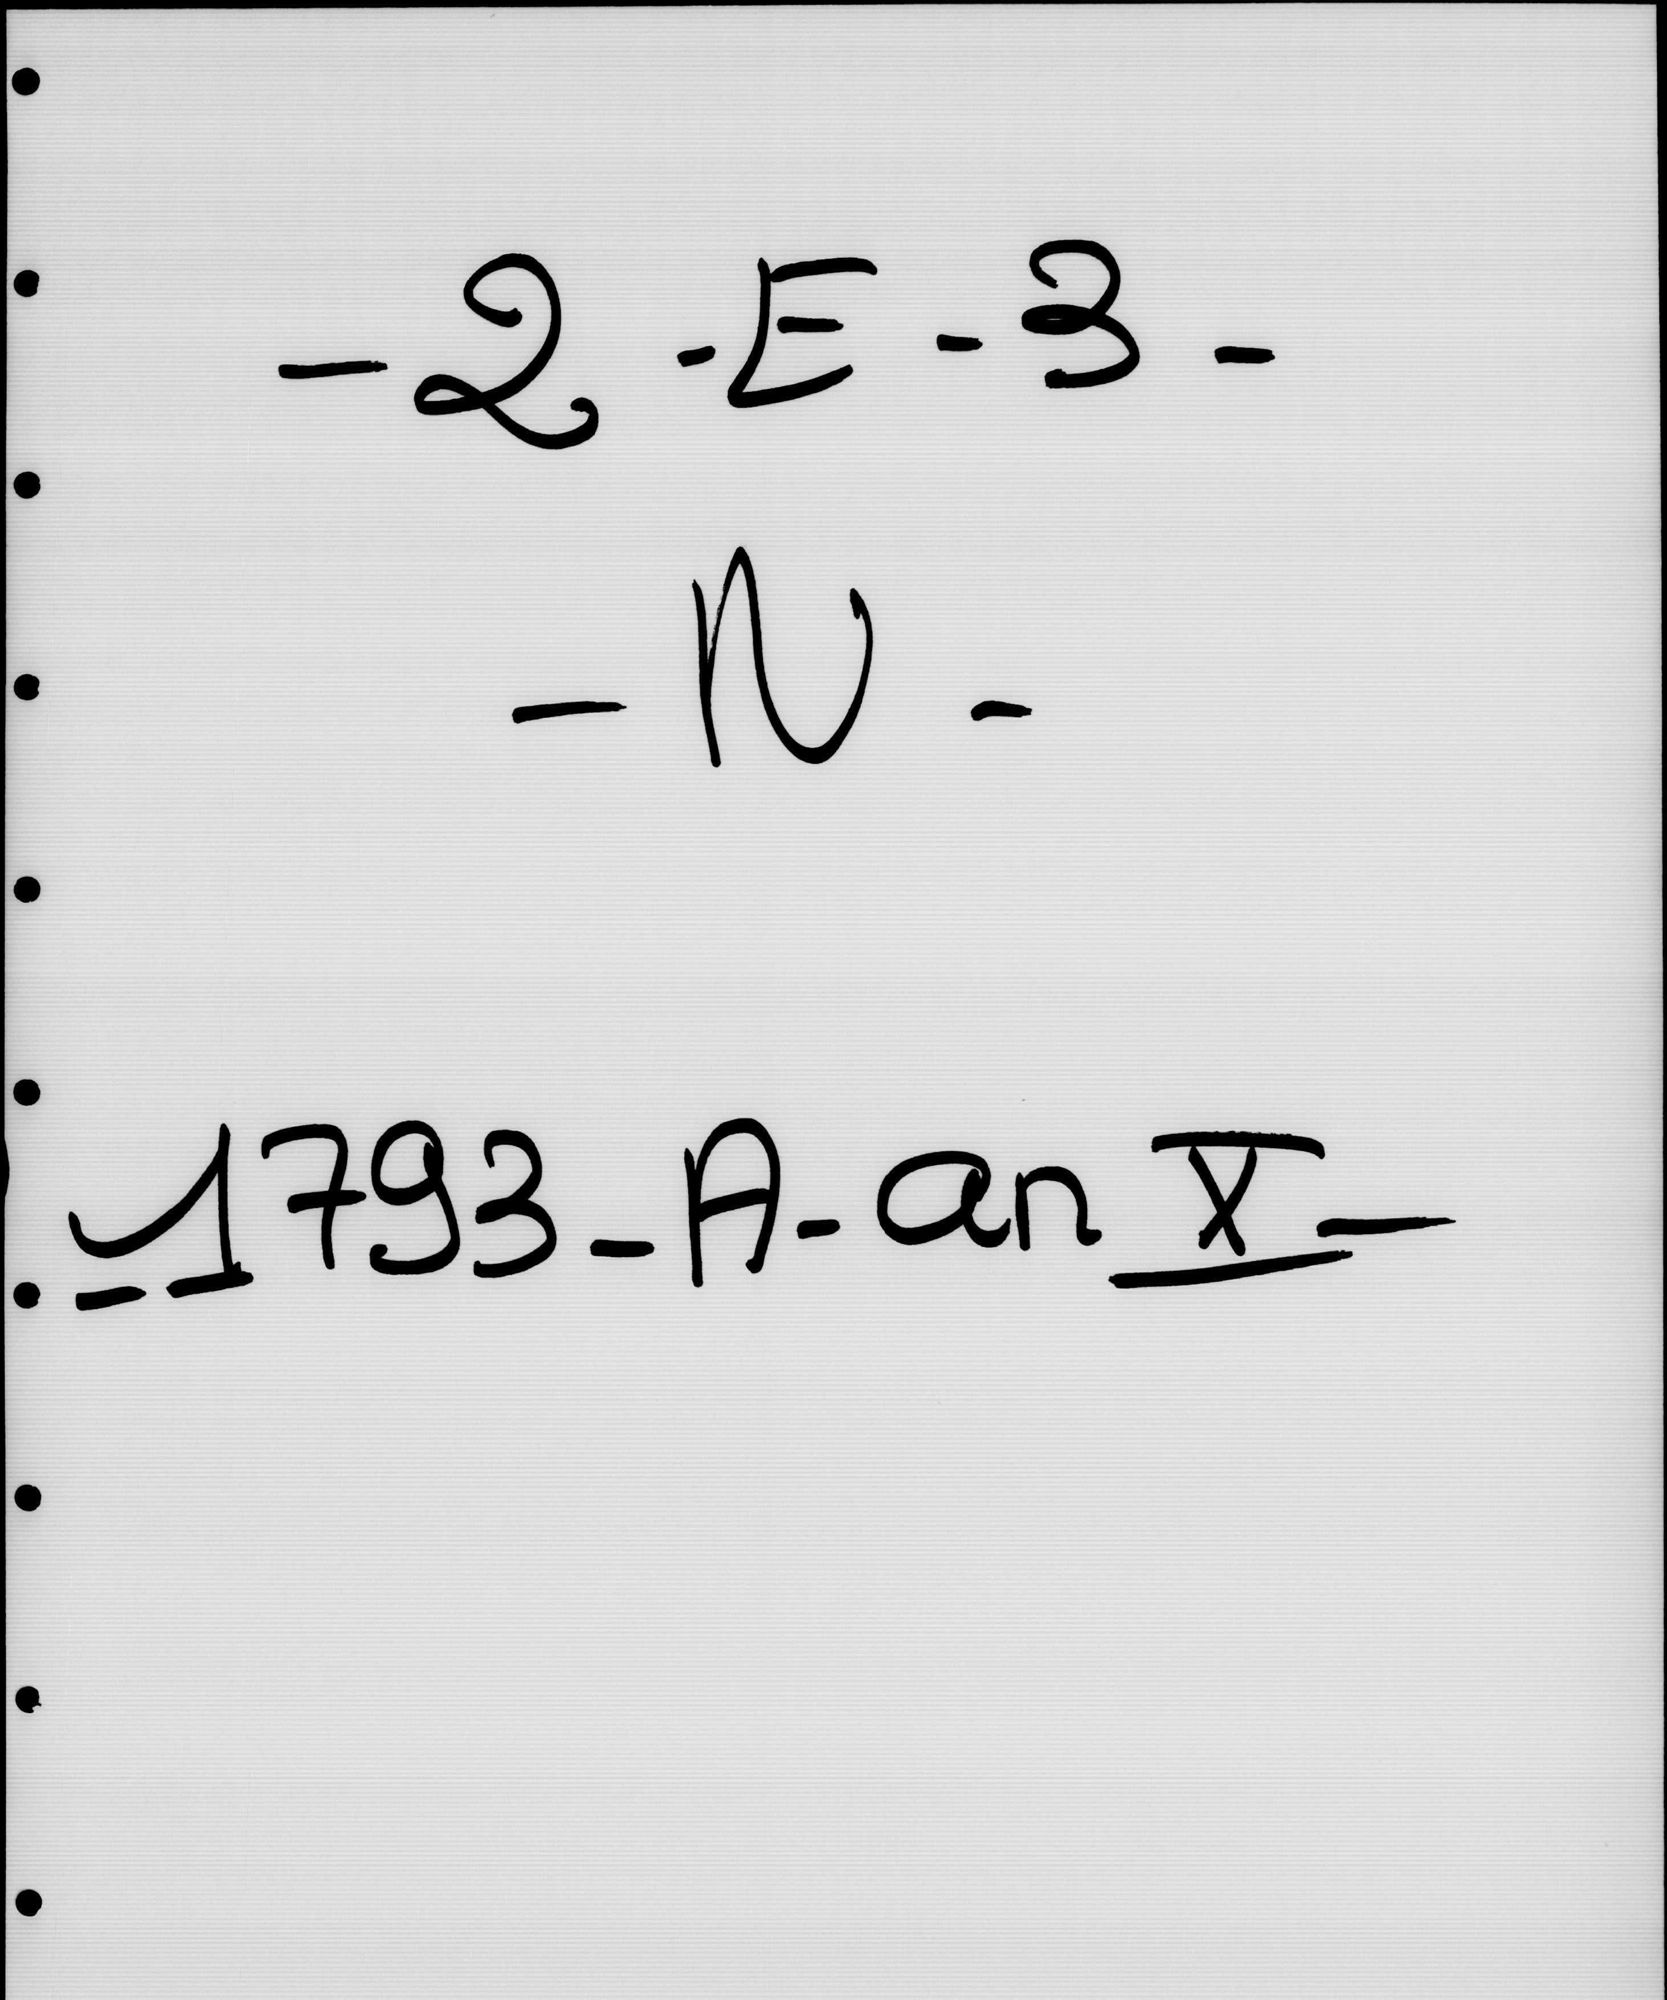 - 2 - E - 3 -
- N -
- 1793 - A - an X -